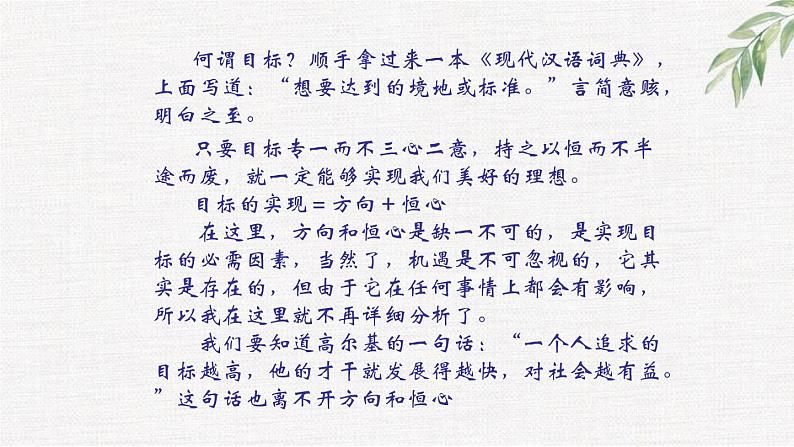 何谓目标？顺手拿过来一本《现代汉语词典》，
上面写道：“想要达到的境地或标准。”言简意赅，
明白之至。
只要目标专一而不三心二意，持之以恒而不半
途而废，就一定能够实现我们美好的理想。
目标的实现＝方向＋恒心
在这里，方向和恒心是缺一不可的，是实现目
标的必需因素，当然了，机遇是不可忽视的，它其
实是存在的，但由于它在任何事情上都会有影响，
所以我在这里就不再详细分析了。
我们要知道高尔基的一句话：“一个人追求的
目标越高，他的才干就发展得越快，对社会越有益。
”这句话也离不开方向和恒心